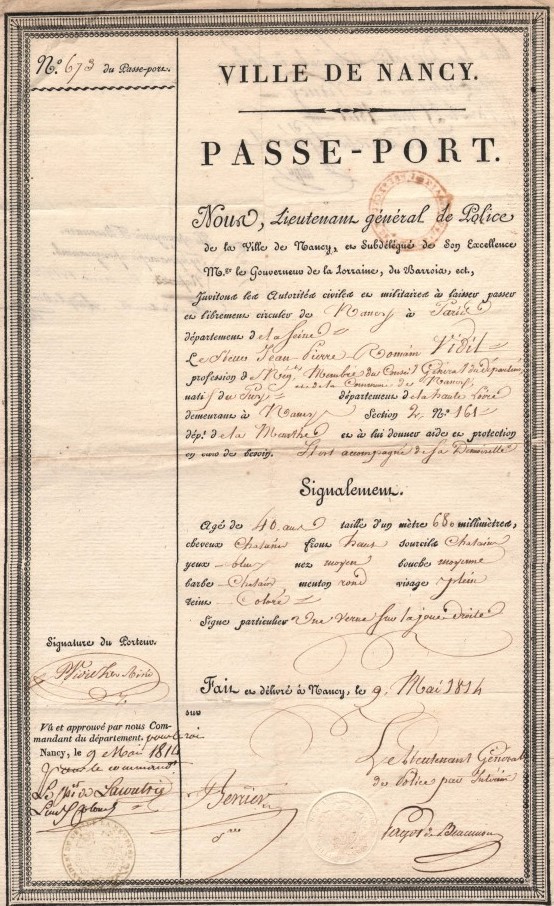 N.º 673 du Passe-port.
VILLE DE NANCY.
PASSE-PORT.
Nous, Lieutenant général de Police
de la Ville de Nancy, et Subdélégué de Son Excellence
M.gr le Gouverneur de la Lorraine, du Barrois, etc.,
Invitons les Autorités civiles et militaires à laisser passer
et librement circuler de Nancy à Paris
département de la Seine
Le Sieur Jean Pierre Romain Vidil
profession de Nég.t Membre du Conseil Général du département
et de la Commune de Nancy
natif du Puy département de la haute Loire
demeurant à Nancy Section 2e N.º 161
dép.t de la Meurthe et à lui donner aide et protection
en cas de besoin. Il est accompagné de sa Demoiselle
Signalement.
Agé de 40 ans taille d'un mètre 680 millimètres,
cheveux Chatains front haut sourcils Chatains
yeux bleu nez moyen bouche moyenne
barbe Chatain menton rond visage plein
teint Coloré
Signe particulier Une verue sur la joue droite
Fait et délivré à Nancy, le 9 Mai 1814
sur
Le Lieutenant Général
de Police par Intérim
Signature du Porteur.
Vû et approuvé par nous Commandant
du département, pour le roi
Nancy, le 9 Mai 1814